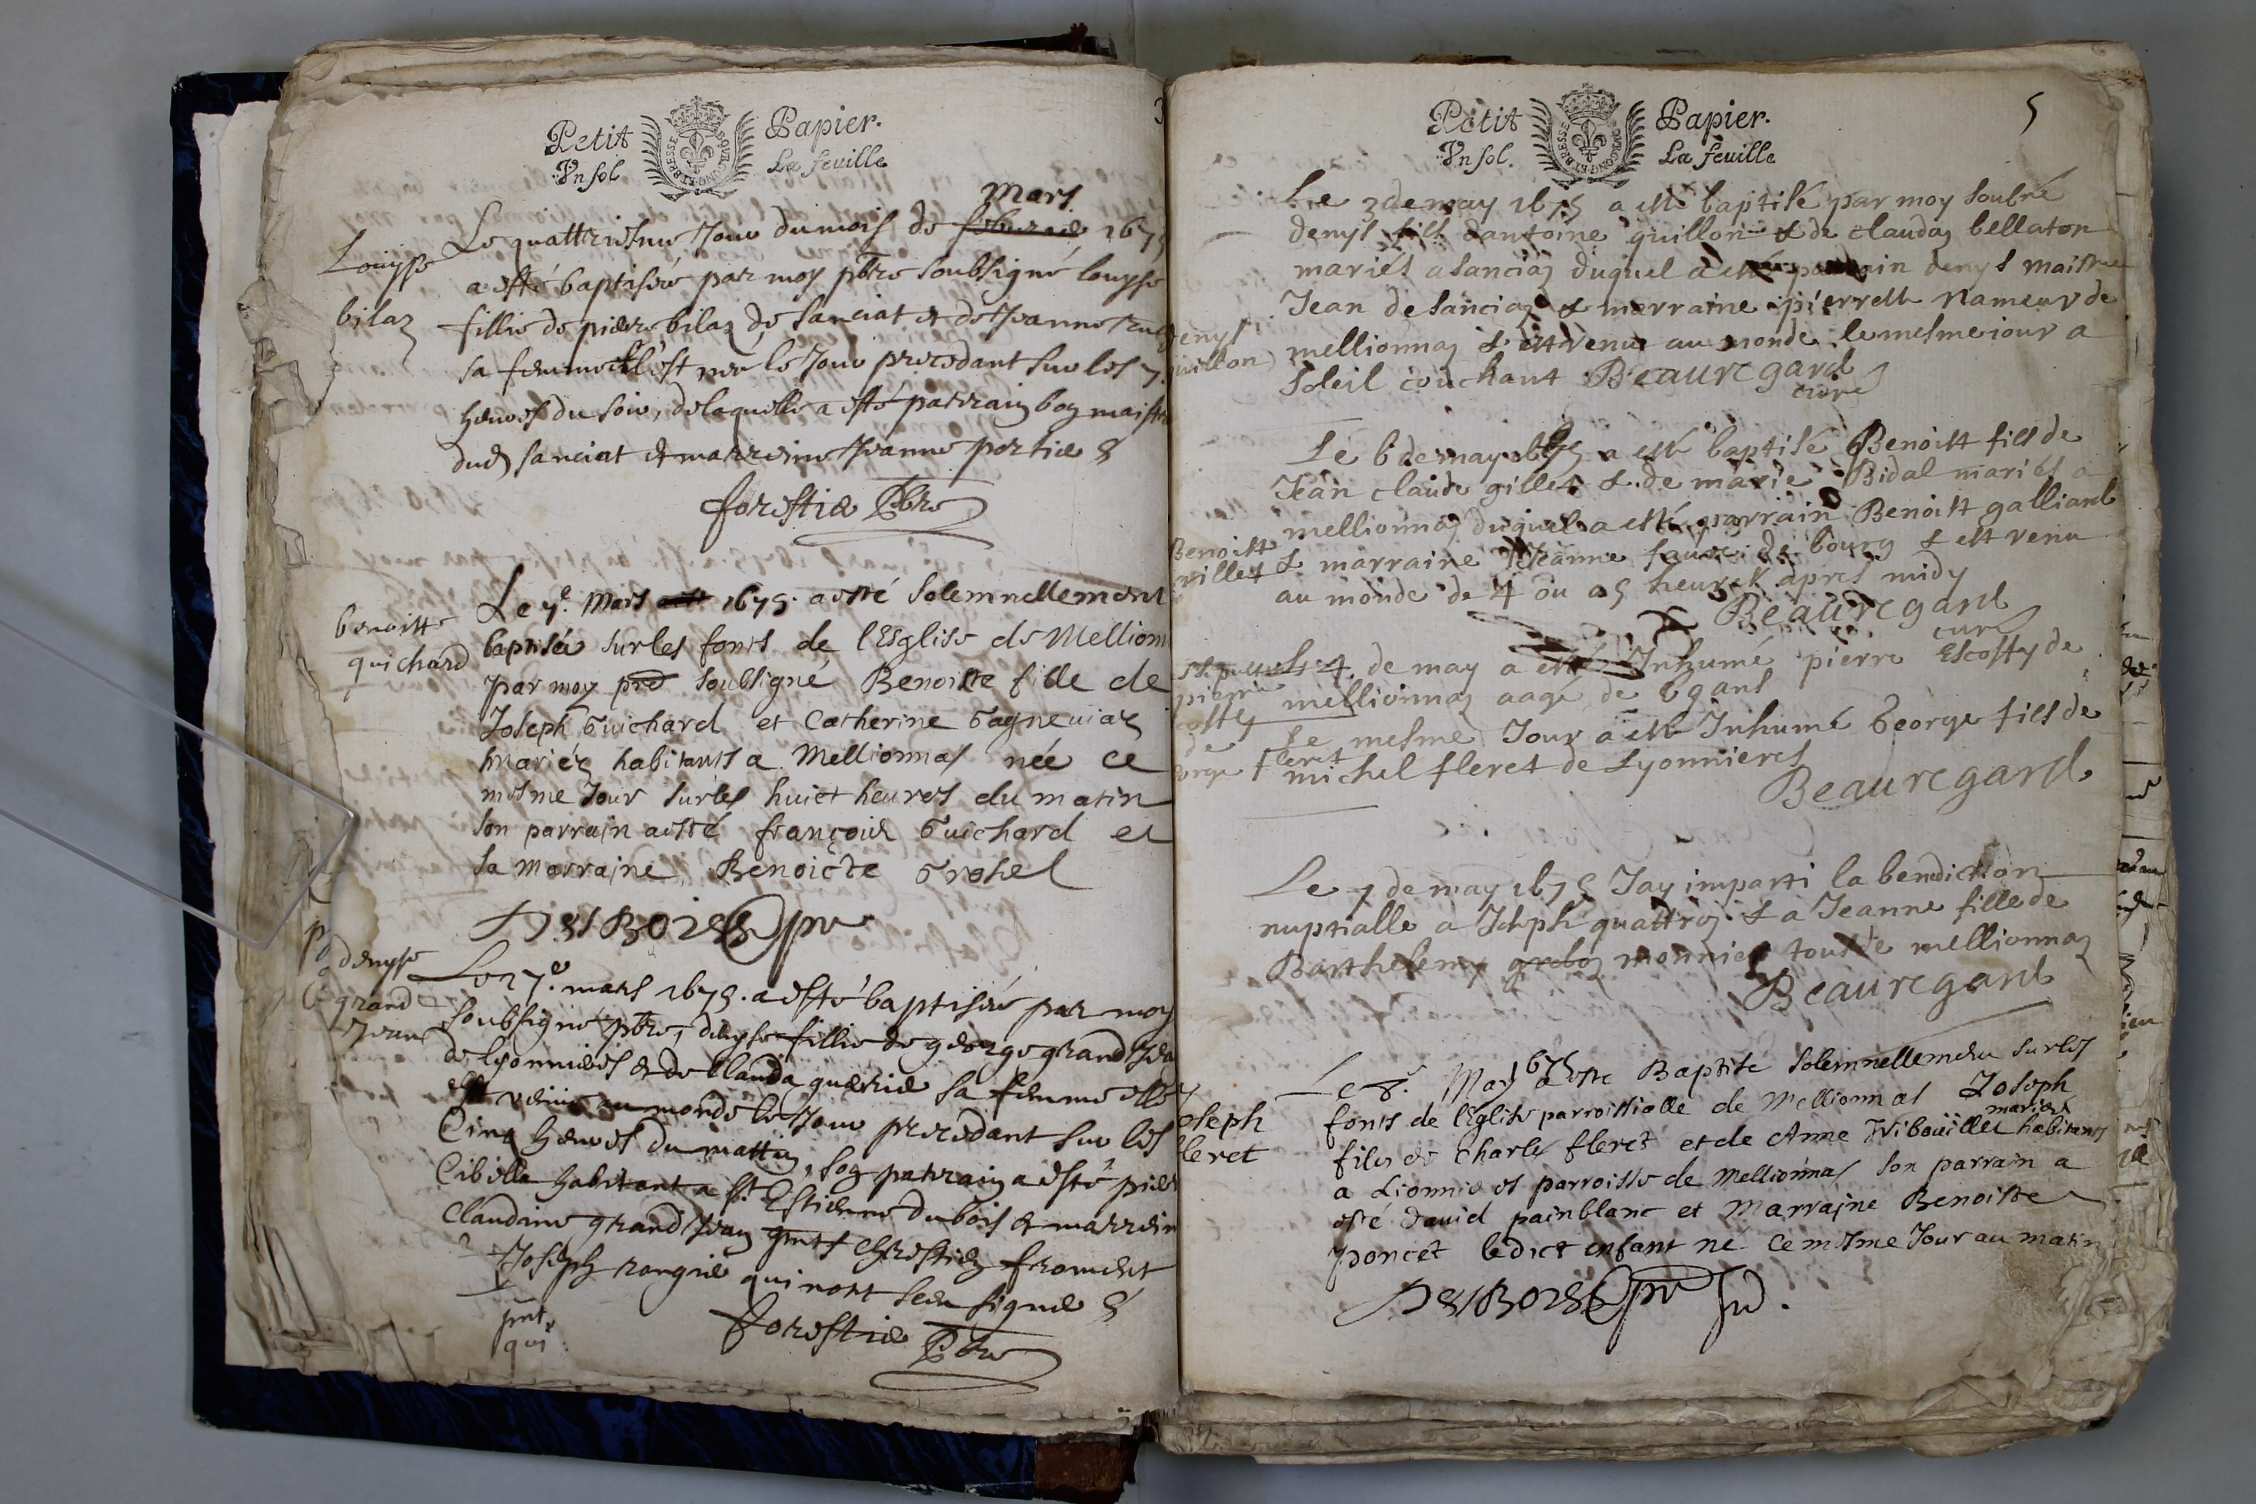 Petit Papier.
Un sol La feuille
Mars
Le quattriesme Jour du mois de 1675
Louysse
bilaz
a esté baptisée par moy pbre soubsigné louyse
fillie de pierre bilaz de sanciat et de Jeanne
sa femme est née le Jour precedant sur les 7
heures du soir, de laquelle a esté parrain maistre
dud sanciat et marreine Jeanne portier
forestier Pbre
benoitte
quichard
Le 7e. Mars 1675. a esté solemnellement
baptisée sur les fonts de l'Eglise de Mellion
par moy soubsigné Benoiste fille de
Joseph Guichard et Catherine Gagneuiaz
mariéz habitants a Mellionnas née ce
mesme Jour sur les huict heures du matin
son parrain a esté françois Guichard et
sa Marrajne Benoicte
denyse
grand
Jean
Le 27e. mars 1675. a esté baptisée par moy
soubsigné pbre, denyse fillie de george grand Jea
de lyonnieres et de Clauda sa femme elle
est venue au monde le Jour precedant sur les
Cinq heures du mattin, son parrain a esté
habitant a st Estienne du bois et marrein
Claudine grand Jean Chrestien froment
Joseph qui nont sceu signer
pnt
qui
forestier Pbre
5
Petit Papier.
Un sol. La feuille
Le 3 de may 1675 a esté baptisé par moy soubné
denys fils dantoine guillon & de clauday bellaton
mariés a sanciaz duquel a esté parrain denys maistre
Jean de sanciaz & marraine pierrett nameur de
enys
uillon
mellionnaz & est venu au monde le mesme iour a
soleil couchant Beauregard
curé
Le 6 de may 1675 a esté baptisé Benoitt fils de
Jean claude gillet & de marie Bidal mariés a
mellionnaz duquel a esté parrain Benoitt galliard
Benoitt
& marraine Jeanne de bourg & est venu
au monde de 4 ou a 5 heures apres midy
Beauregard
curé
Le 4 de may a esté Inhumé pierre Escoffy de
mellionnaz aagé de 69 ans
Le mesme Jour a esté Inhumé George fils de
michel fleret de Lyonnieres
Beauregard
Le 7 de may 1675 Jay imparti la benediction
nuptialle a Joseph quattroz & a Jeanne fille de
Barthelemy monnier tous de mellionnaz
Beauregard
Le 8e. May 1675 a esté Baptisé solemnellement sur les
oseph
leret
fonts de l'Eglise parroissialle de Mellionnas Joseph
mariéz
fils de Charles fleret et de Anne habitants
a Lionnieres parroisse de Mellionnas son parrain a
esté dauid painblanc et Marrajne Benoiste
poncet ledict enfant né ce mesme Jour au matin